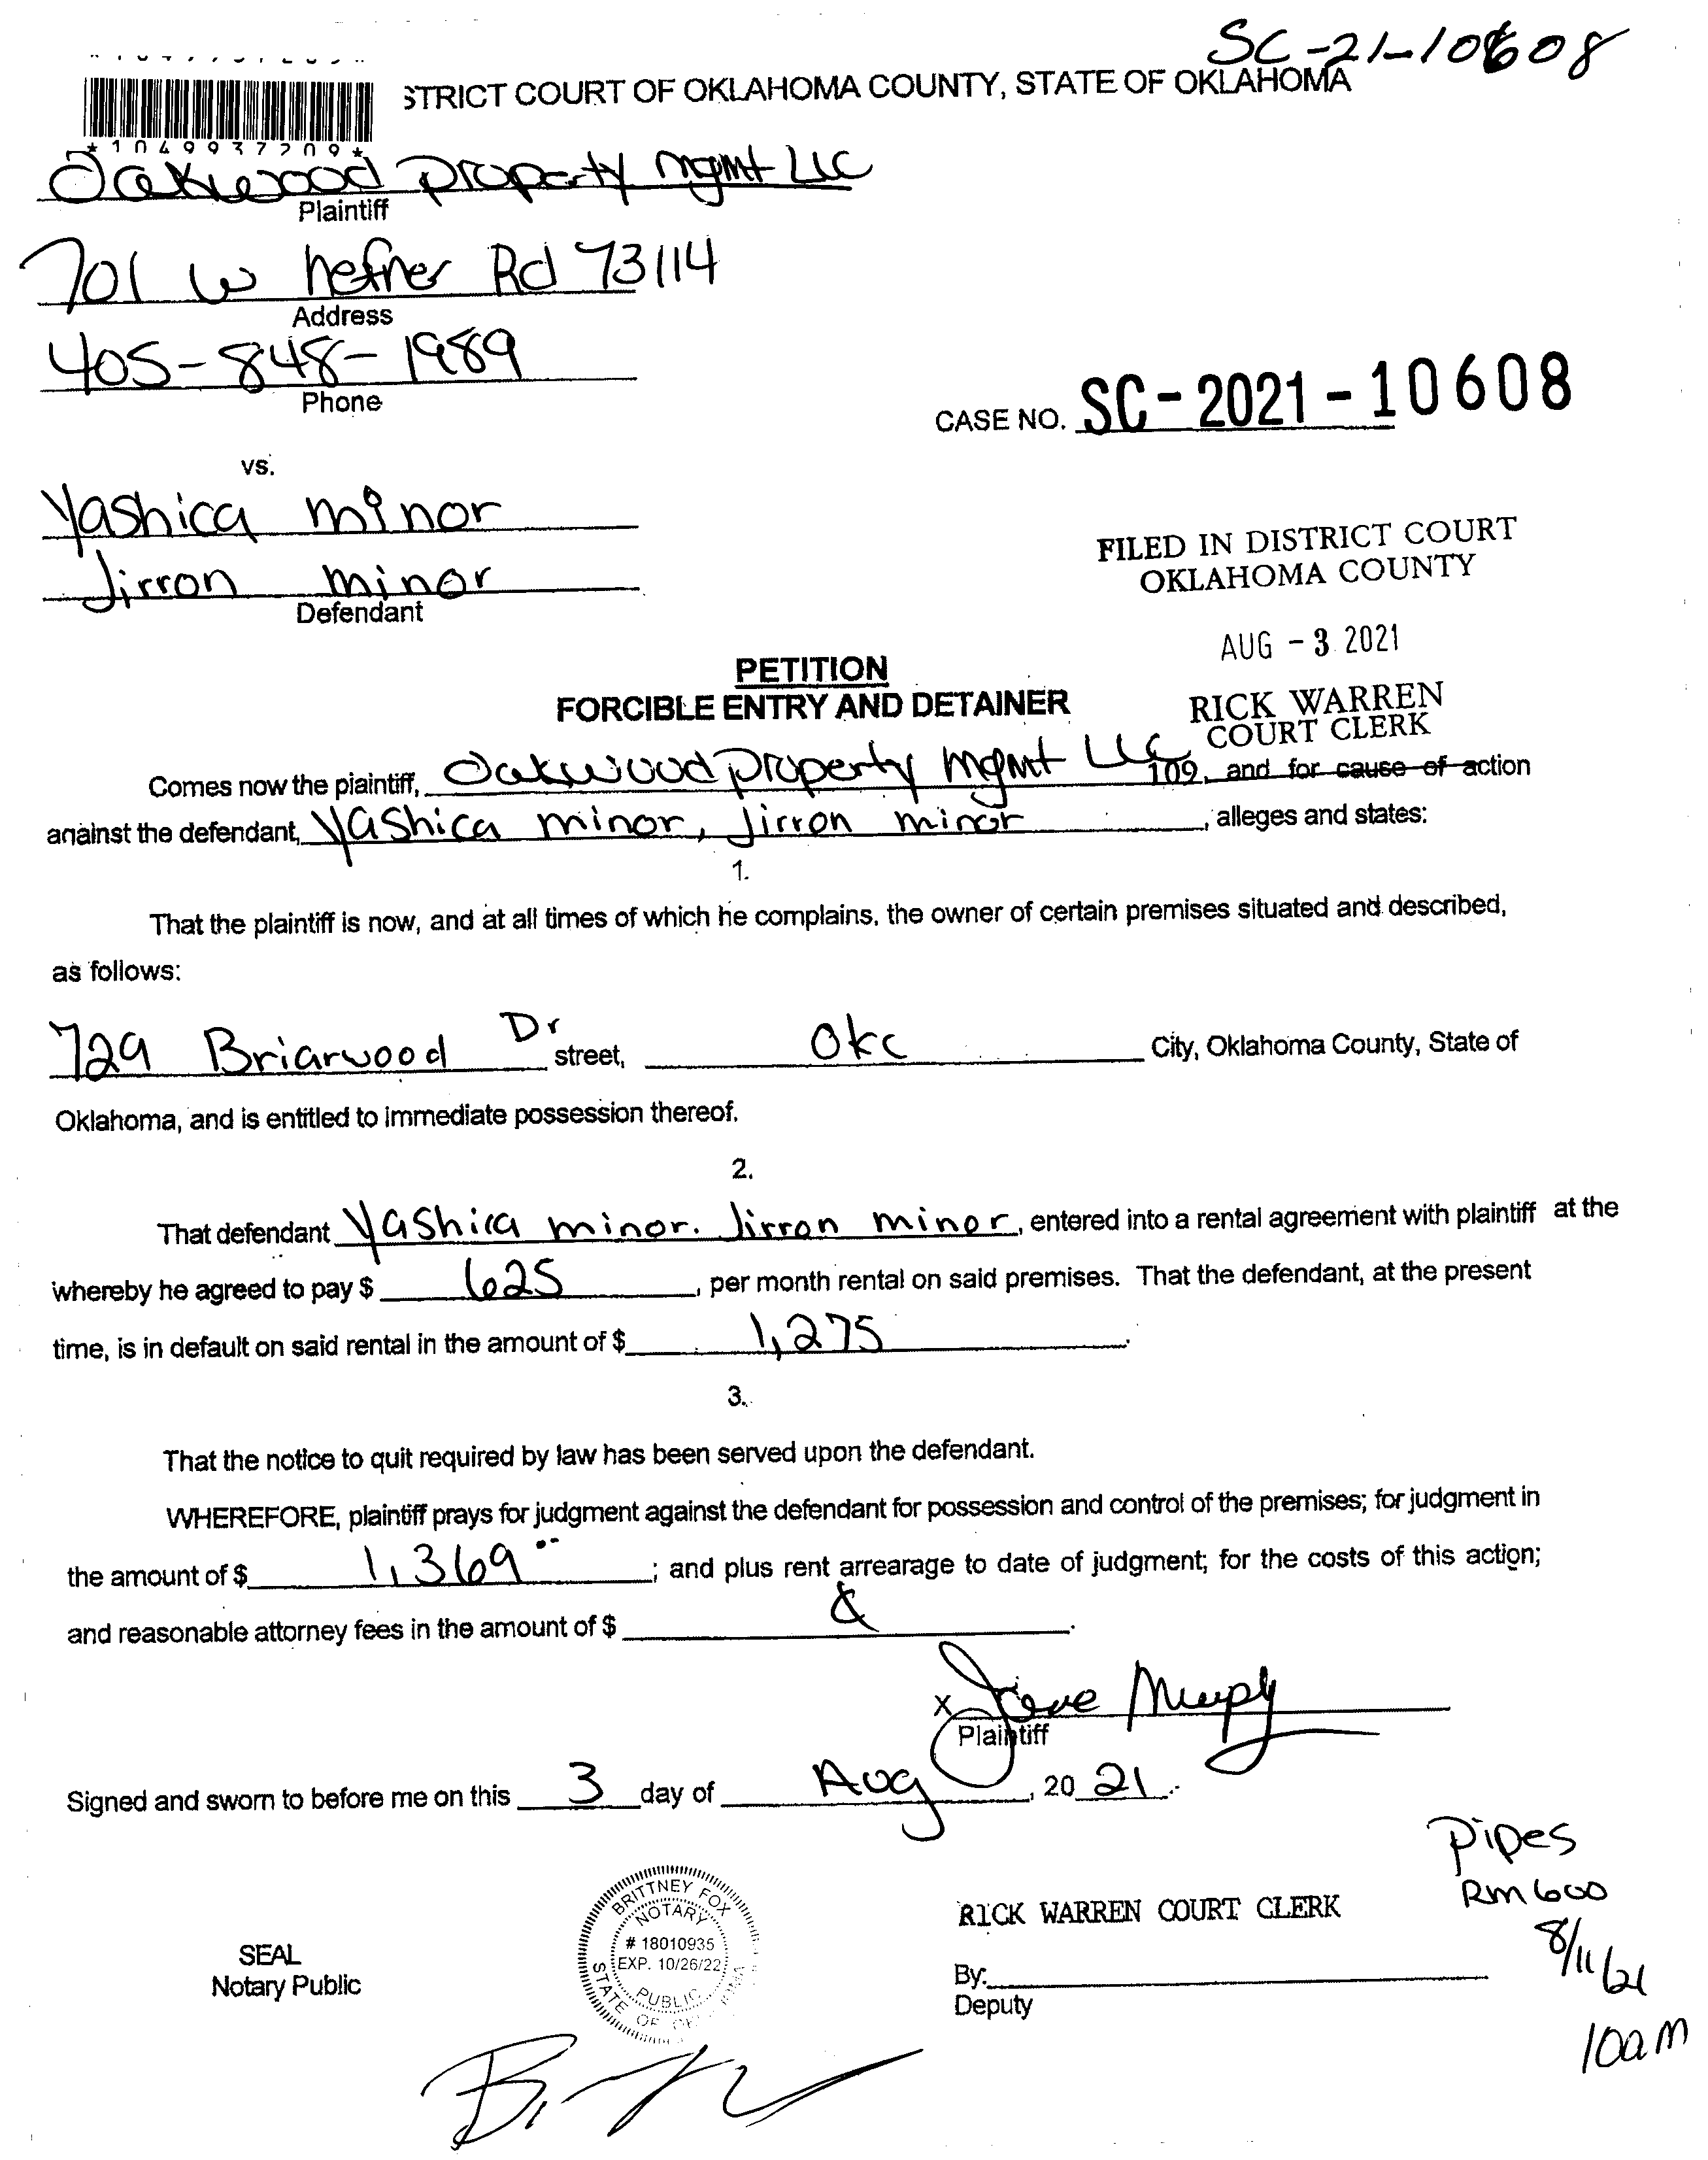 SC-21-10608
STRICT COURT OF OKLAHOMA COUNTY, STATE OF OKLAHOMA
*1049937209*
Oakwood property mgmt LLC
Plaintiff
701 W hefner Rd 73114
Address
405-848-1989
Phone
CASE NO. SC-2021-10608
vs.
Yashica minor
Jirron minor
Defendant
FILED IN DISTRICT COURT
OKLAHOMA COUNTY
AUG -3 2021
RICK WARREN
COURT CLERK
PETITION
FORCIBLE ENTRY AND DETAINER
Comes now the plaintiff, Oakwood property mgmt LLC 109, and for cause of action
against the defendant, Yashica minor, Jirron minor, alleges and states:
1.
That the plaintiff is now, and at all times of which he complains, the owner of certain premises situated and described,
as follows:
729 Briarwood Dr street, Okc City, Oklahoma County, State of
Oklahoma, and is entitled to immediate possession thereof.
2.
That defendant Yashica minor. Jirron minor, entered into a rental agreement with plaintiff at the
whereby he agreed to pay $ 625, per month rental on said premises. That the defendant, at the present
time, is in default on said rental in the amount of $ 1,275.
3.
That the notice to quit required by law has been served upon the defendant.
WHEREFORE, plaintiff prays for judgment against the defendant for possession and control of the premises; for judgment in
the amount of $ 1,369 ; and plus rent arrearage to date of judgment; for the costs of this action;
and reasonable attorney fees in the amount of $ &.
X Irene Murphy
Plaintiff
Signed and sworn to before me on this 3 day of Aug, 20 21.
Pipes
Rm 600
8/11/21
10am
BRITTNEY FOX
NOTARY
# 18010935
EXP. 10/26/22
PUBLIC
STATE OF
SEAL
Notary Public
RICK WARREN COURT CLERK
By:
Deputy